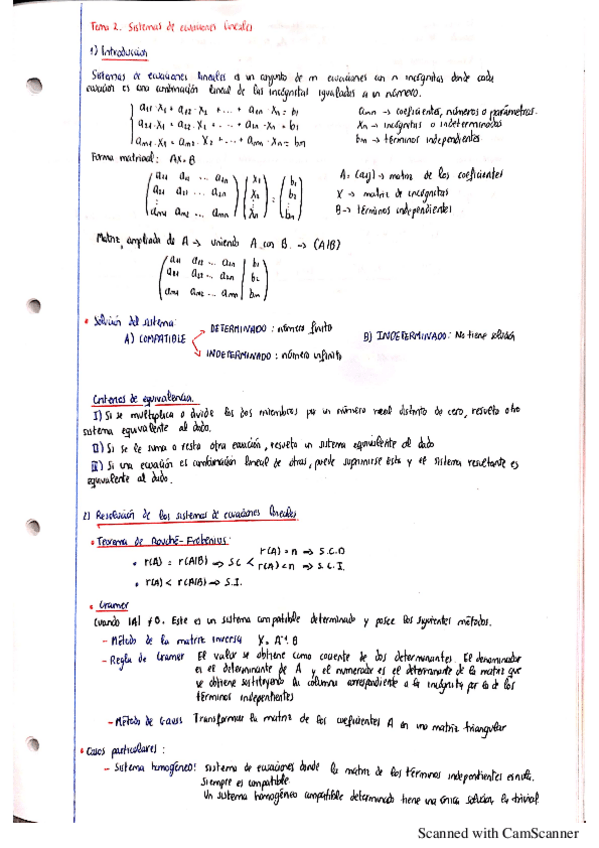 Tema 2. Sistemas de ecuaciones lineales
1) Introducción
Sistemas de ecuaciones lineales es un conjunto de m ecuaciones con n incógnitas donde cada
ecuación es una combinación lineal de las incógnitas igualadas a un número.
a11·x1 + a12·x2 + ... + a1n·xn = b1 amn → coeficientes, números o parámetros.
xn → incógnitas o indeterminadas
am1·x1 + am2·x2 + ... + amn·xn = bm bn → términos independientes
Forma matricial: AX=B
A = (aij) → matriz de los coeficientes
X → matriz de incógnitas
B → términos independientes
Matriz ampliada de A → uniendo A con B → (A|B)
a11 a12 ... a1n | b1
a21 a22 ... a2n | b2
am1 am2 ... amn | bm
• Solución del sistema:
DETERMINADO: número finito
A) COMPATIBLE B) INDETERMINADO: No tiene solución
INDETERMINADO: número infinito
Criterios de equivalencia.
I) Si se multiplica o divide los dos miembros por un número real distinto de cero, resulta otro
sistema equivalente al dado.
II) Si se le suma o resta otra ecuación, resulta un sistema equivalente al dado
III) Si una ecuación es combinación lineal de otras, puede suprimirse ésta y el sistema resultante es
equivalente al dado.
2) Resolución de los sistemas de ecuaciones lineales
• Teorema de Rouché-Frobenius:
r(A) = n ⇒ S.C.D
• r(A) = r(A|B) ⇒ SC < r(A) < n ⇒ S.C.I.
• r(A) < r(A|B) ⇒ S.I.
• Cramer
Cuando |A| ≠ 0. Este es un sistema compatible determinado y posee los siguientes métodos.
- Método de la matriz inversa X = A⁻¹·B
- Regla de Cramer El valor se obtiene como cociente de dos determinantes. El denominador
es el determinante de A y el numerador es el determinante de la matriz que
se obtiene sustituyendo la columna correspondiente a la incógnita por la de los
términos independientes
- Método de Gauss Transformar la matriz de los coeficientes A en una matriz triangular
• Casos particulares:
- Sistema homogéneo: sistema de ecuaciones donde la matriz de los términos independientes es nula.
Siempre es compatible.
Un sistema homogéneo compatible determinado tiene una única solución, la trivial
Scanned with CamScanner